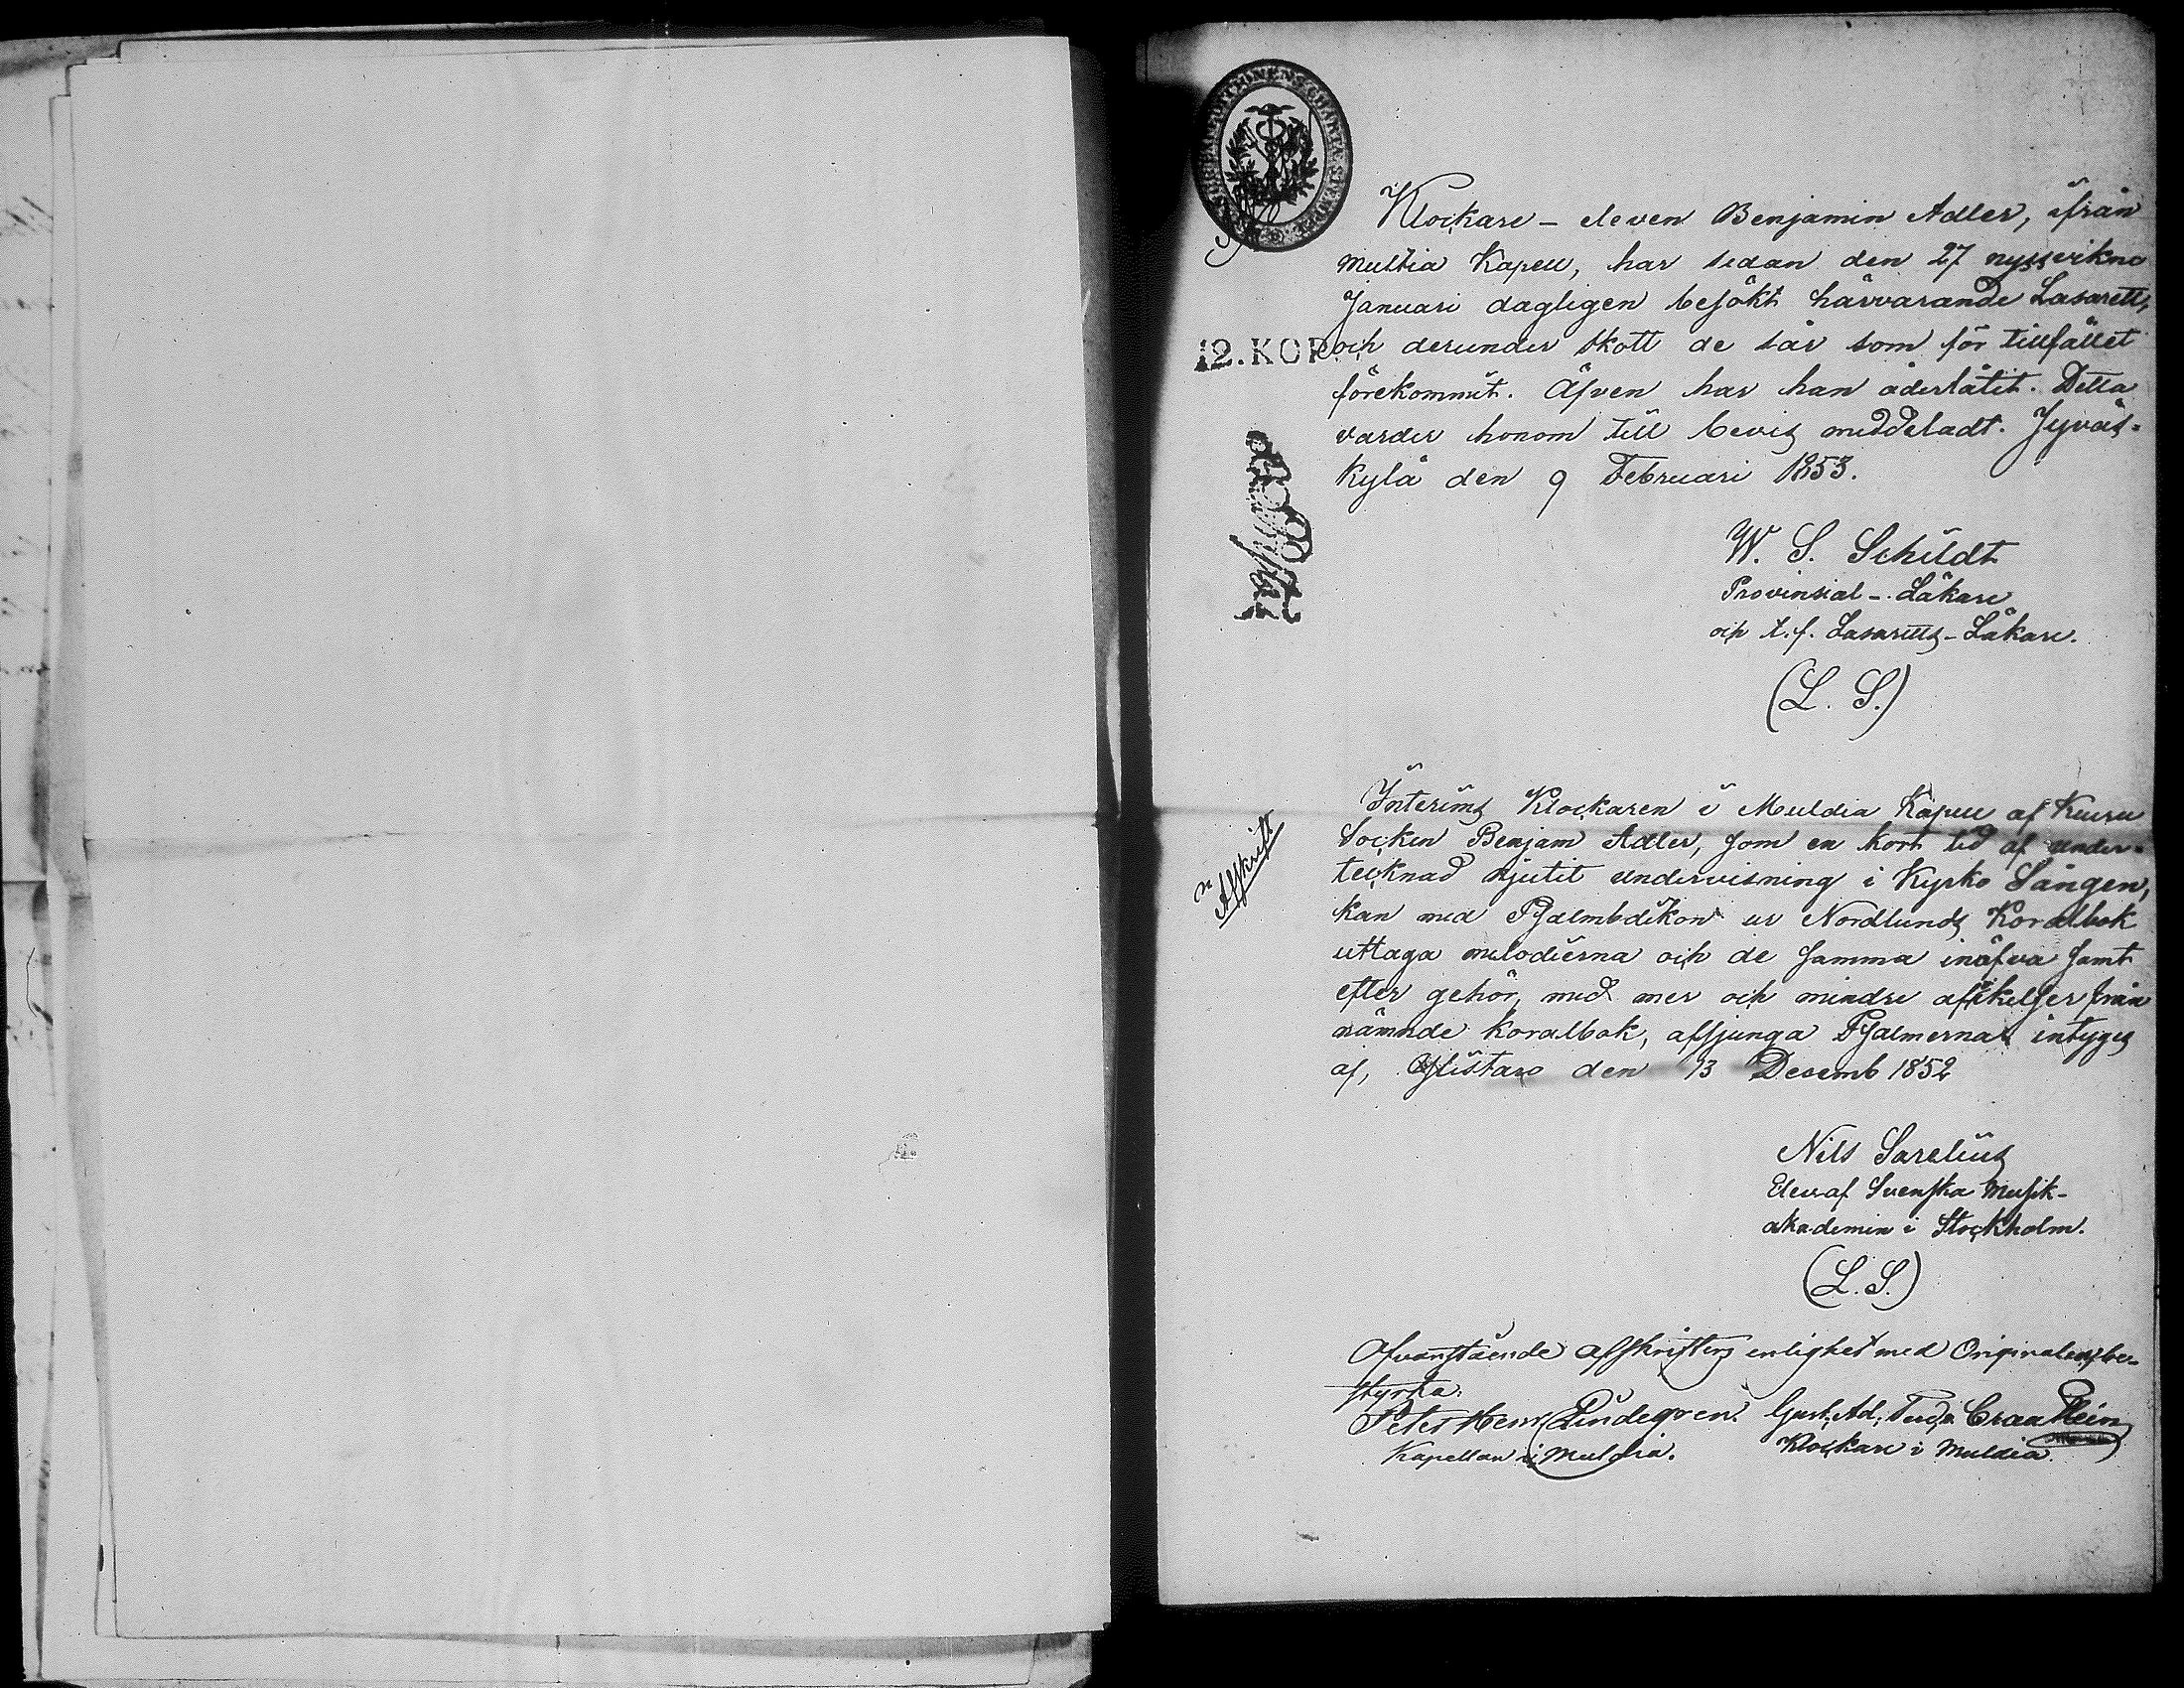 Klockare - eleven Benjamin Adler, ifrån
Multia Kapell, har sedan den 27 nyssvikne
Januari dagligen besökt härvarande Lasarett,
12.KOP.
och derunder skött de sår som för tillfället
förekommit. Äfven har han åderlåtit. Detta
varder honom till bevis meddeladt. Jyväs-
kylä den 9 Februari 1853.
W. S. Schildt
Provinsial - Läkare
och t.f. Lasaretts - Läkare.
(L. S.)
Afskrift
Interims Klockaren i Muldia Kapell af Keuru
Socken Benjam Adler, som en kort tid af under-
tecknad njutit undervisning i Kyrko Sången,
kan med Psalmodikon ur Nordlunds Koralbok
uttaga melodierna och de samma inöfva samt
efter gehör, med mer och mindre afvikelser från
nämnde koralbok, afsjunga Psalmerna intygas
af, Ylistaro den 13 Decemb 1852
Nils Sarelius
Elev af Svenska Musik-
akademin i Stockholm.
(L.S.)
Ofvanstående afskrifters enlighet med Originalen, be-
styrka:
Peter Henr Lindegren. Gust. Ad. Ferd.
Kapellan i Muldia. Klockare i Muldia.